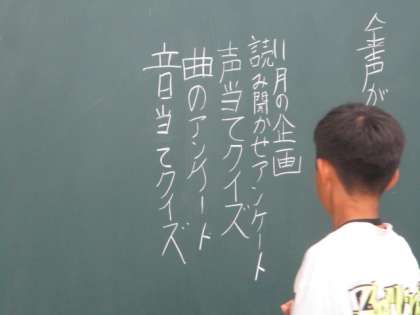 全声が
11月の企画
読み聞かせアンケート
声当てクイズ
曲のアンケート
音当てクイズ